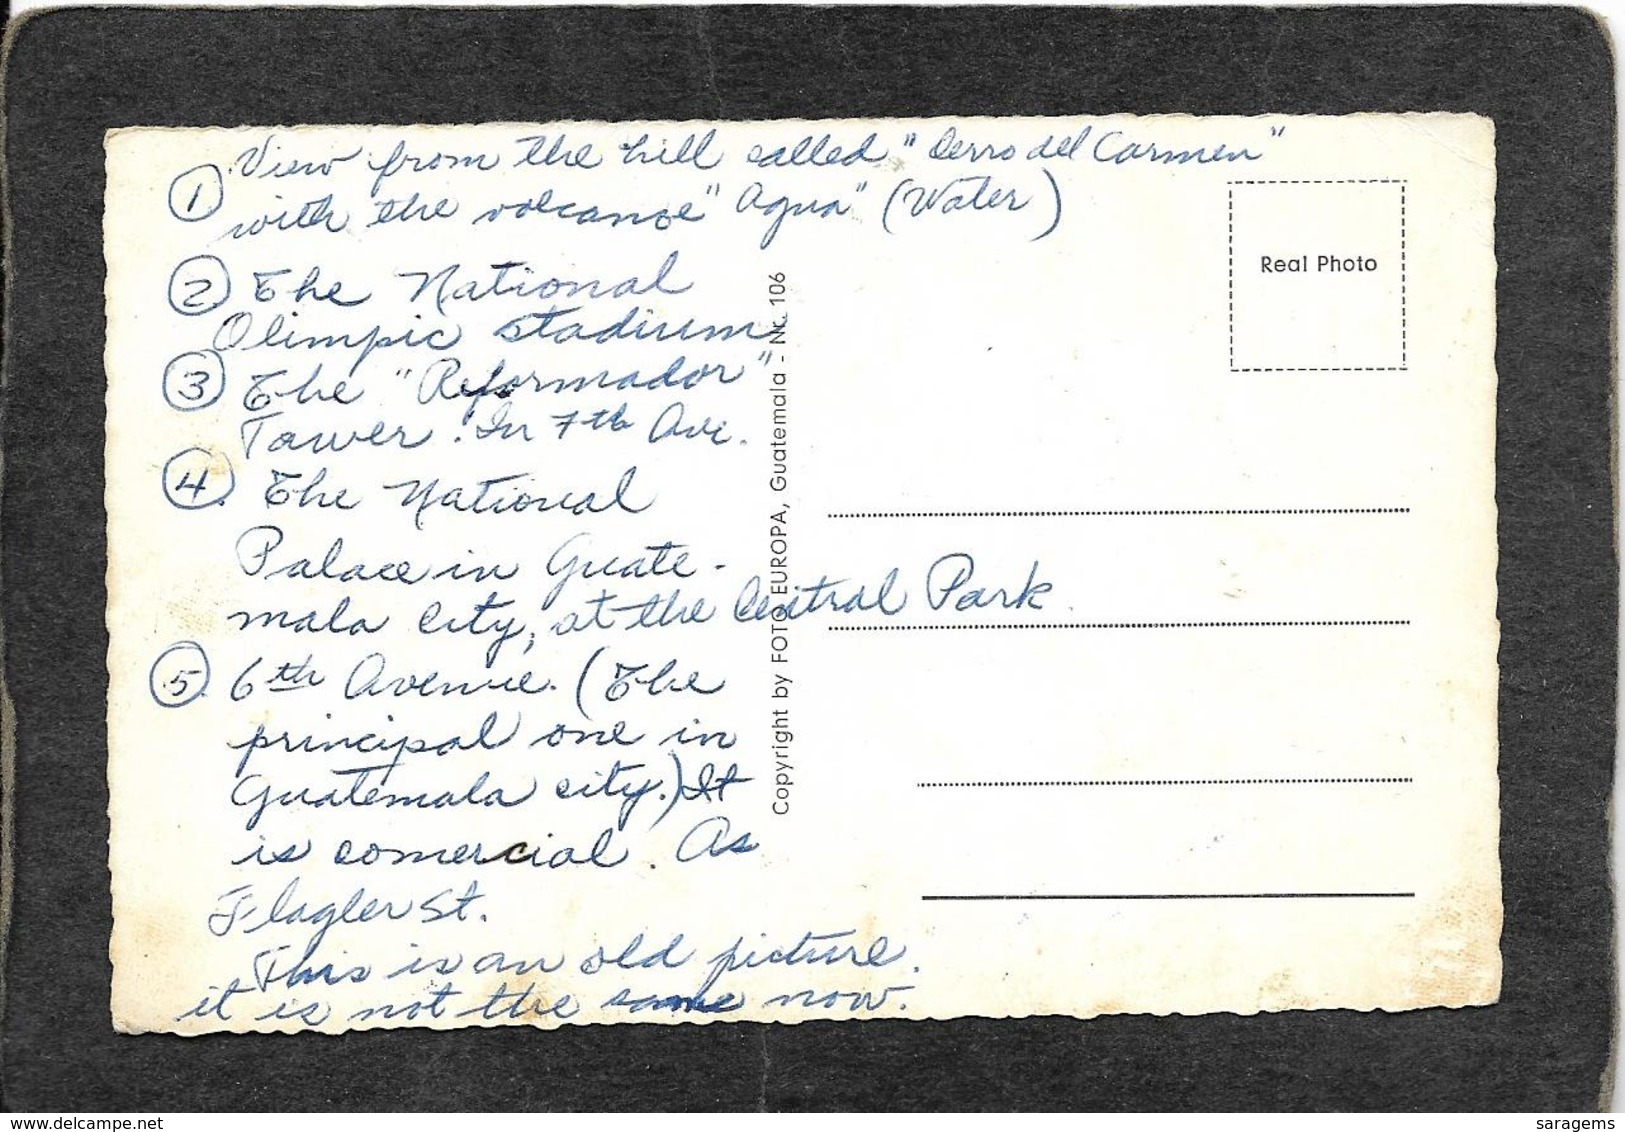 ① View from the hill called "Cerro del Carmen"
with the volcanoe "Agua" (Water)
② The National
Olimpic stadium
③ The "Reformador"
Tower. In 7th Ave.
④ The National
Palace in Guate-
mala city, at the Central Park.
⑤ 6th Avenue. (The
principal one in
Guatemala city.) It
is comercial. As
Flagler St.
This is an old picture.
it is not the same now.
Copyright by FOTO EUROPA, Guatemala - Nr. 106
Real Photo
delcampe.net
saragems